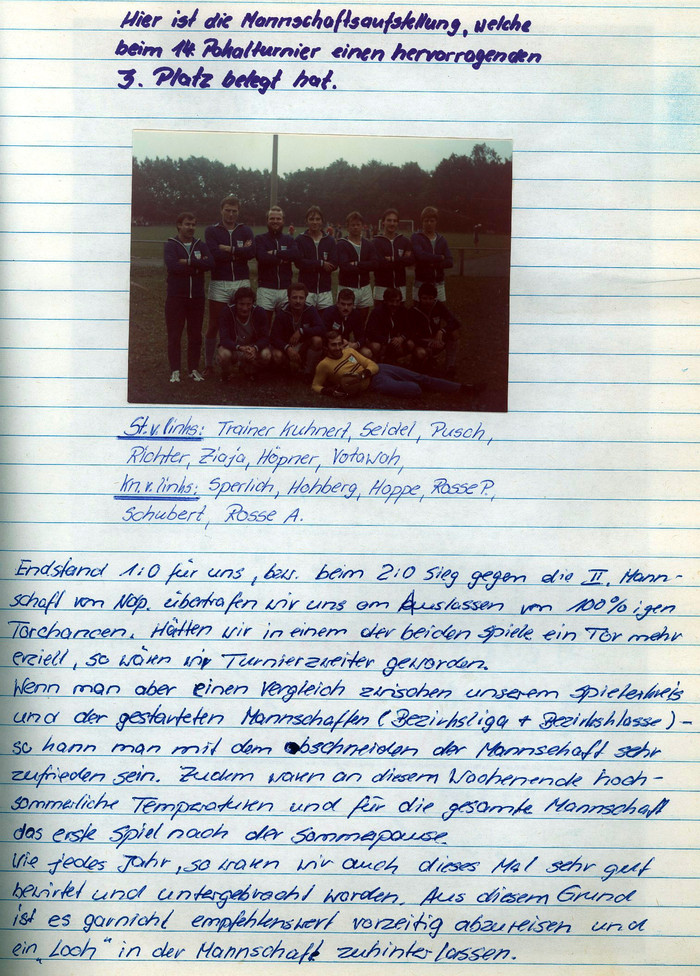 Hier ist die Mannschaftsaufstellung, welche
beim 14. Pokalturnier einen hervorragenden
3. Platz belegt hat.
St. v. links: Trainer Kuhnert, Seidel, Pusch,
Richter, Ziaja, Höpner, Votawah,
Kn. v. links: Sperlich, Hohberg, Hoppe, Rosse P.,
Schubert, Rosse A.
Endstand 1:0 für uns, bzw. beim 2:0 Sieg gegen die II. Mann-
schaft von Nop. übertrafen wir uns am Auslassen von 100% igen
Torchancen. Hätten wir in einem der beiden Spiele ein Tor mehr
erziell, so wären wir Turnierzweiter geworden.
Wenn man aber einen Vergleich zwischen unserem Spielerkreis
und der gestarteten Mannschaften (Bezirksliga + Bezirksklasse) -
so kann man mit dem abschneiden der Mannschaft sehr
zufrieden sein. Zudem waren an diesem Wochenende hoch-
sommerliche Temperaturen und für die gesamte Mannschaft
das erste Spiel nach der Sommerpause.
Wie jedes Jahr, so waren wir auch dieses Mal sehr gut
bewirtet und untergebracht worden. Aus diesem Grund
ist es garnicht empfehlenswert vorzeitig abzureisen und
ein „Loch" in der Mannschaft zuhinterlassen.